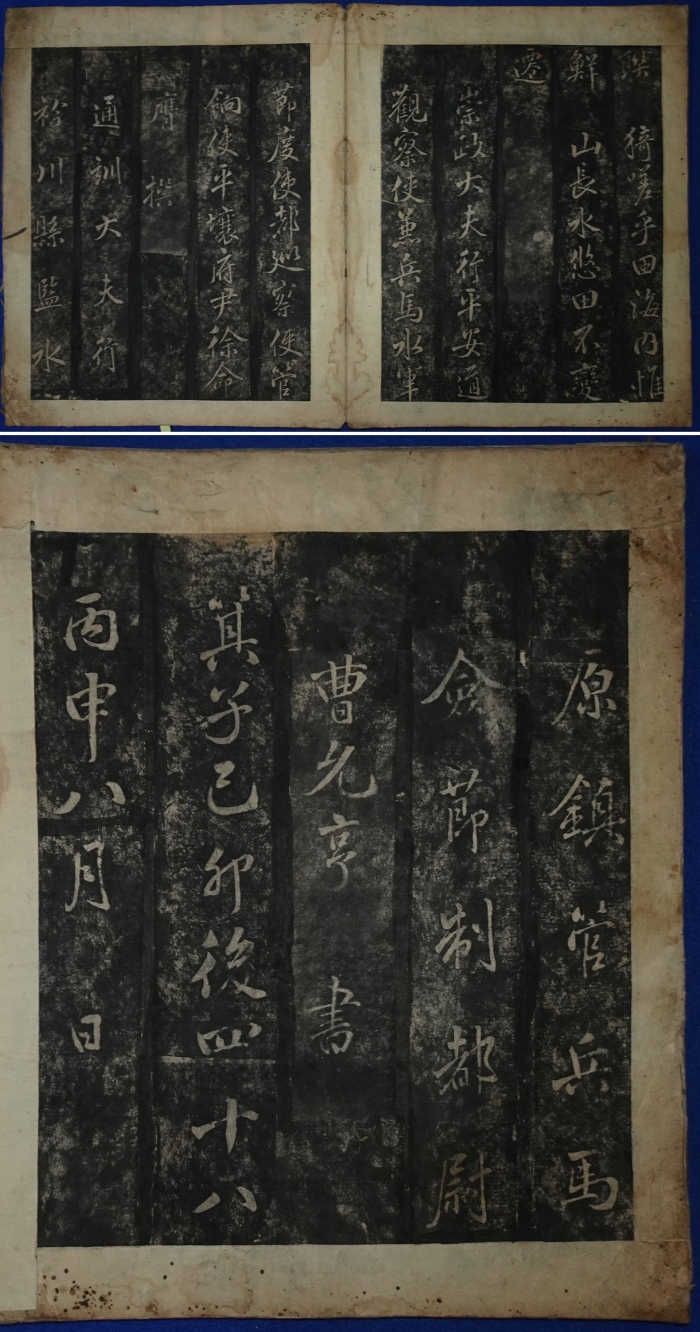 猗嗟乎田海內惟
鮮 山長水悠田不變
遷
崇政大夫行平安道
觀察使兼兵馬水軍
節度使都巡察使管
餉使平壤府尹徐命
膺 撰
通訓大夫行
衿川縣監水
原鎮管兵馬
僉節制都尉
曹允亨 書
箕子己卯後四十八
丙申八月 日